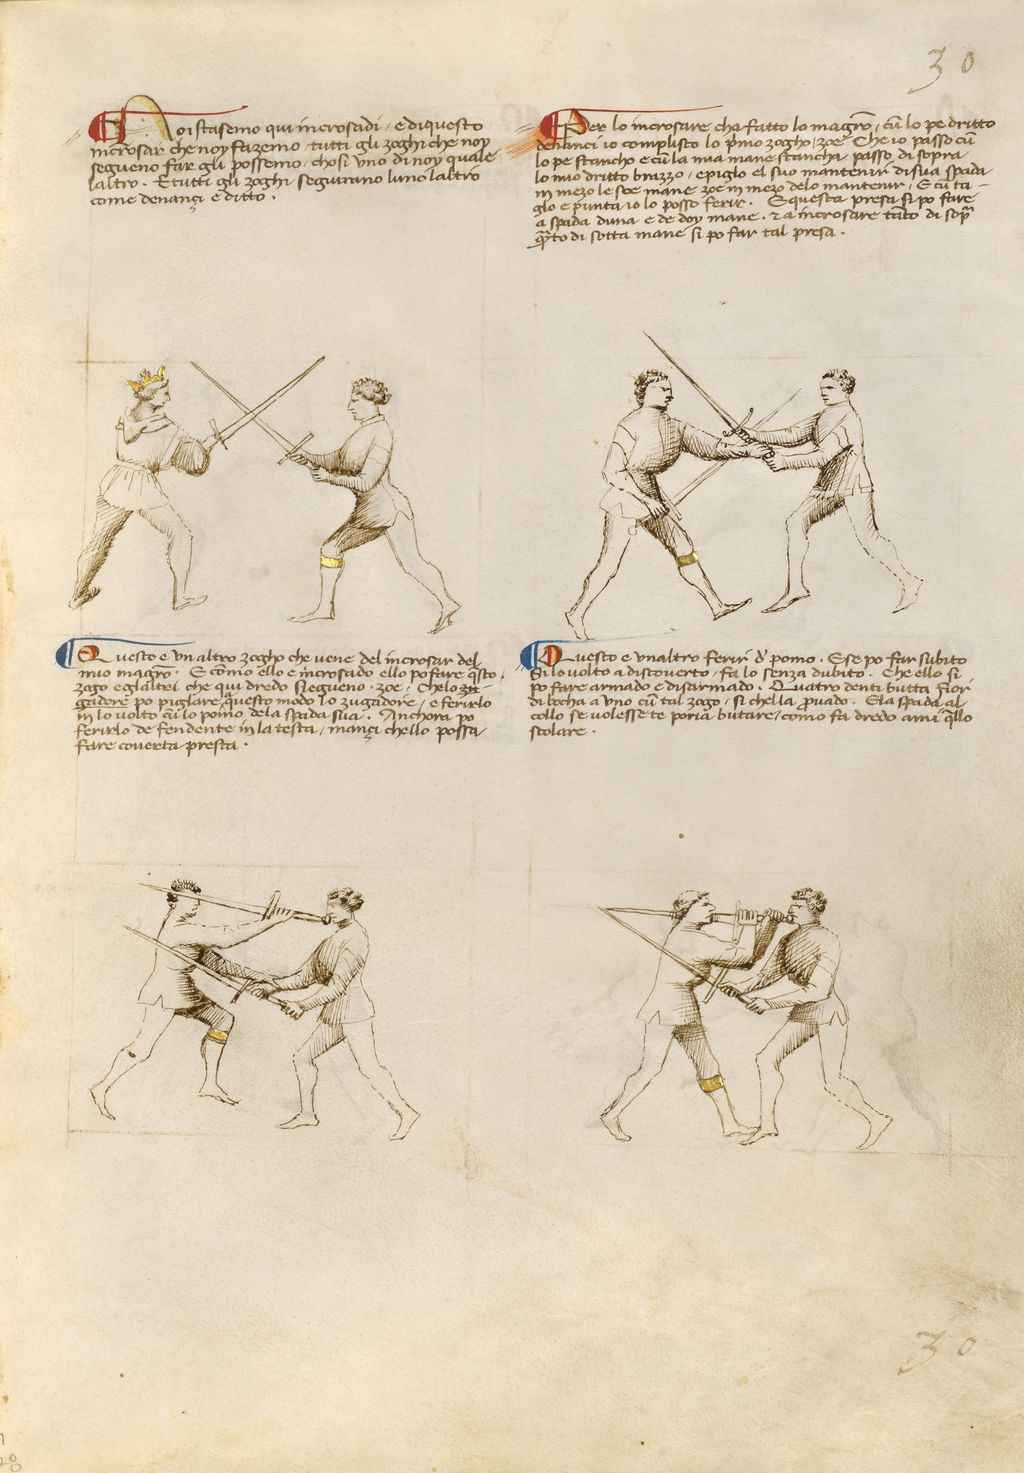 30
Noi stasemo qui incrosadi / e di questo
incrosar che noy fazemo tutti gli zoghi che noy
segueno far gli possemo / chosi uno di noy quale
laltro . E tutti gli zoghi seguirano luno laltro
come denançi è ditto .
Per lo incrosare cha fatto lo magrō / cū lo pe dritto
denanci io complisto lo p̄mo zogho / zoe Che io passo cū
lo pe stancho e cū la mia mane stancha passo di sopra
lo mio dritto brazzo / e piglo el suo mantenir di sua spada
in mezo le soe mane zoe in mezo delo mantenir / E cū ta-
glo e punta io lo posso ferir . E questa presa si po fare
a spada duna e de doy mane . Ea incrosare tāto di sop̄
q̄to di sotta mane si po far tal presa .
Questo e un altro zogho che vene del incrosar del
mio magrō . E como ello e incrosado ello po fare q̄sto
zogo e gl altri che qui dredo siegueno . zoe / Chelo zu
gadore po piglare q̄ questo modo lo zugadore / e ferirlo
in lo volto cū lo pomo dela spada sua . Anchora po
ferirlo de fendente in la testa / mançi chello possa
fare coverta presta .
Questo e unaltro ferir d' pomo . Ese po far subito
Si lo volto a discoverto / fa lo senza dubito . Che ello si
po fare armado e disarmado . Quatro denti butta fior
di bocha a uno cū tal zogo / si chella puado . E la spada al
collo se volesse te poria butare / como fa dredo a mi q̄llo
scolare .
30